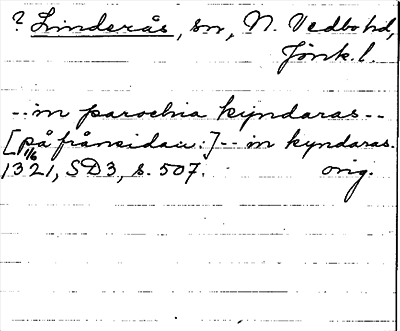 ? Linderås, sn, N. Vedbo hd,
Jönk. l.
-- in parochia kyndaras --
[på frånsidan:] -- in kyndaras.
1/6 1321, SD3, s. 507. orig.